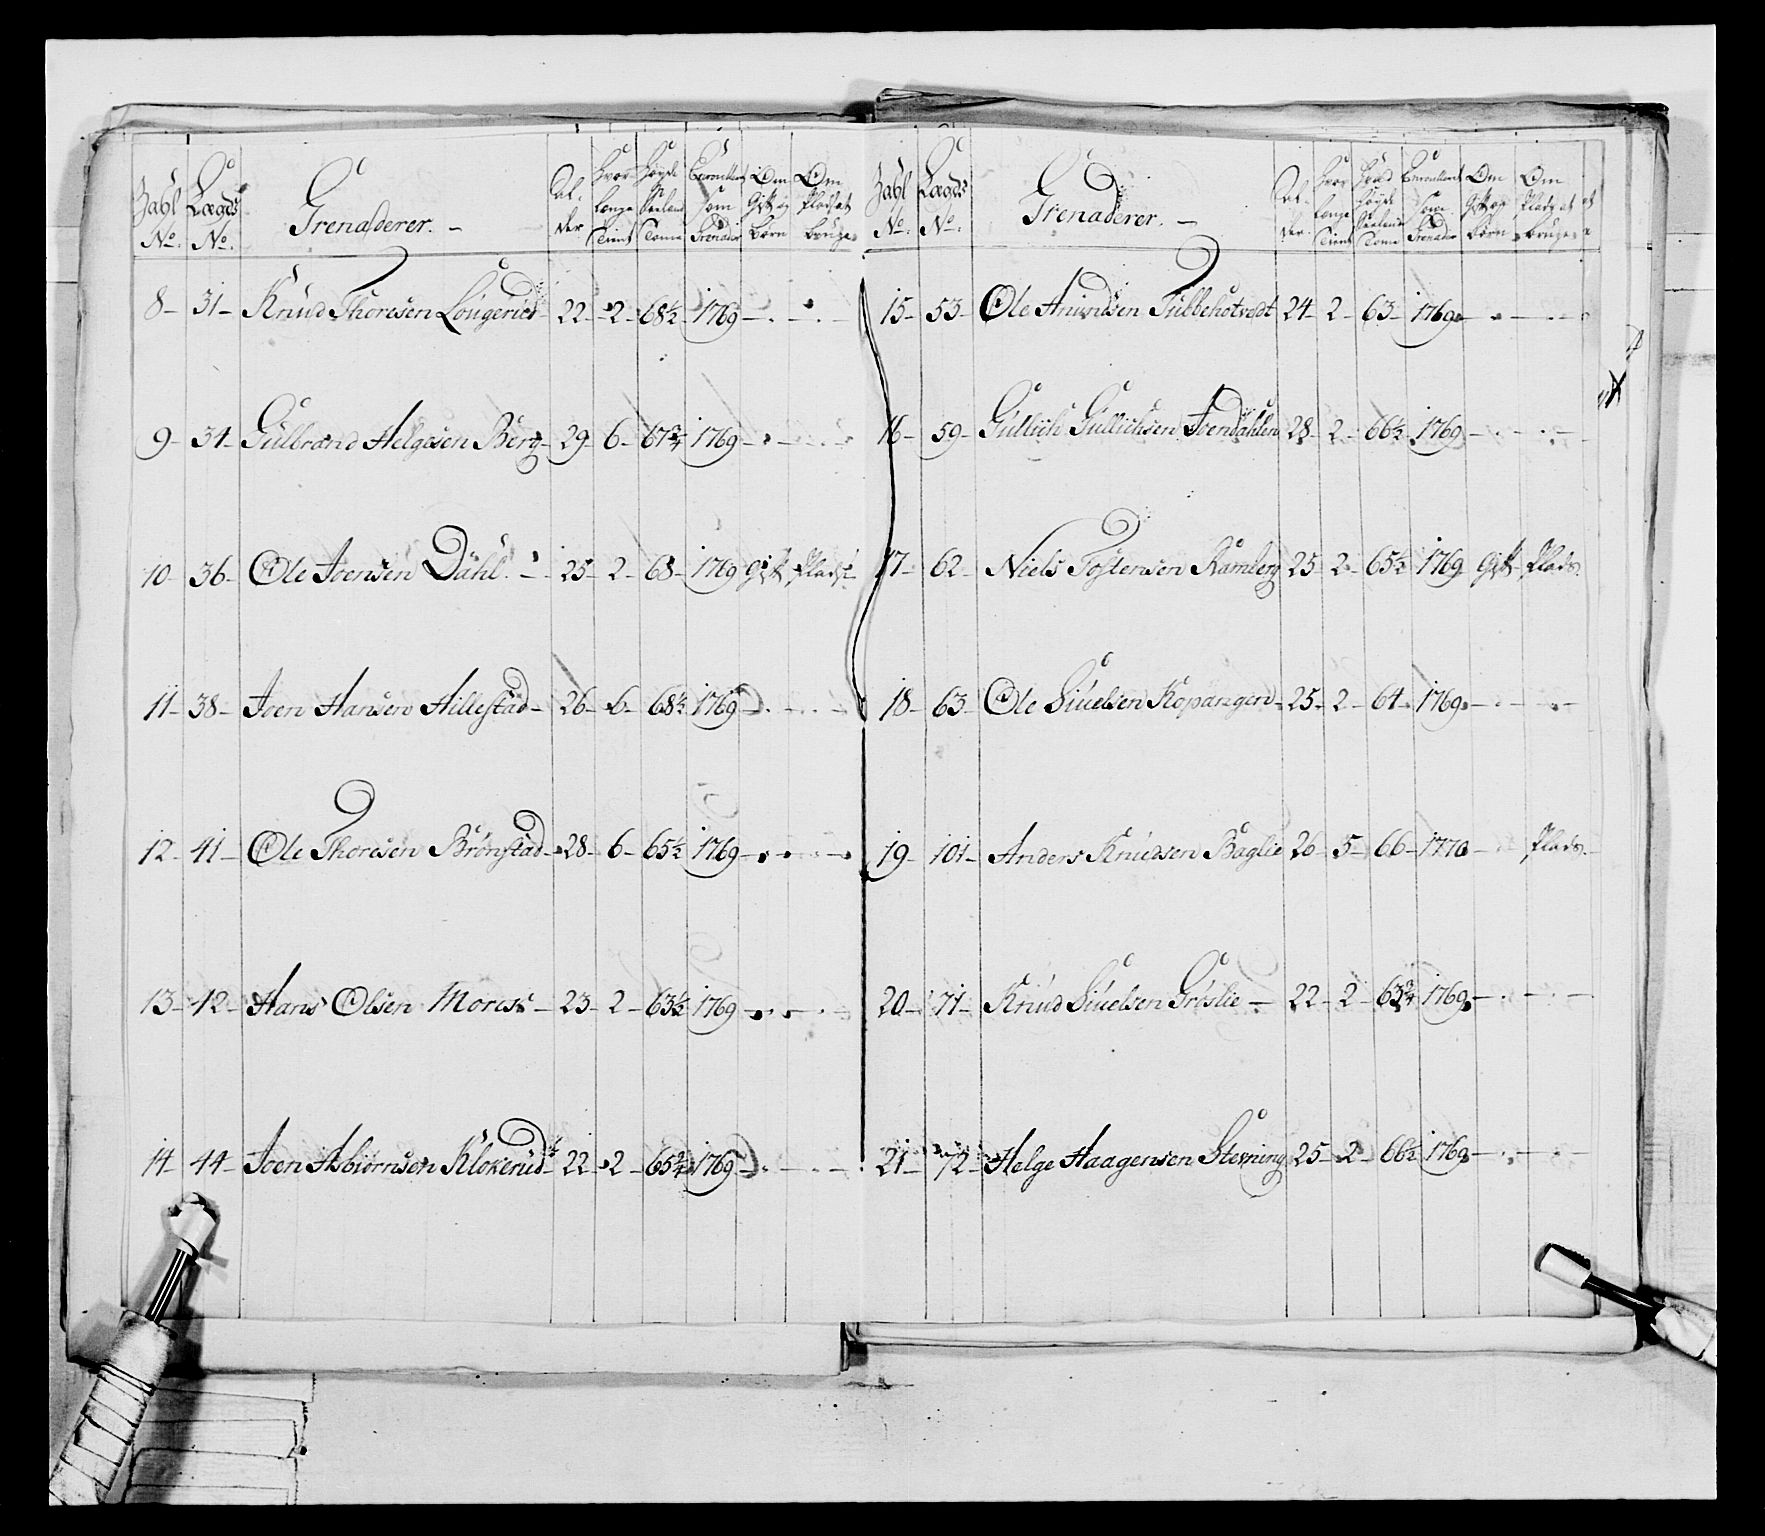 Zahl No. Lægds No. Grenaderer. Al-der Hvor Lenge Tient Høyde Siælands Tome Enroullert som Grenader Om Gift og børn Om Pladset bruge
8 31 Knud Thoresen 22 2 68½ 1769
9 34 Gulbrand Helgesen Berg 29 6 67¾ 1769
10 36 Ole Joensen Dahl 25 2 68 1769 Gift Plads
11 38 Joen Hansen Hillestad 26 6 68½ 1769
12 41 Ole Thoresen Brønstad 28 6 65½ 1769
13 42 Hans Olsen Morck 23 2 63½ 1769
14 44 Joen Asbiørnsen Klokerud 22 2 65¾ 1769
Zahl No. Lægds No. Grenaderer. Al-der Hvor Lenge Tient Høyde Siælands Tome Enroullert som Grenader Om Gift og børn Om Plads at bruge
15 53 Ole 24 2 63 1769
16 59 Gullich Gullichsen Joendahlen 28 2 66½ 1769
17 62 Niels Tostensen Ramberg 25 2 65½ 1769 Gift Plads
18 63 Ole Siuelsen Kopangen 25 2 64 1769
19 101 Anders Knudsen Baglie 26 5 66 1770 Plads
20 71 Knud Siuelsen Grøslie 22 2 63¾ 1769
21 72 Helge Haagensen Stevning 25 2 66½ 1769